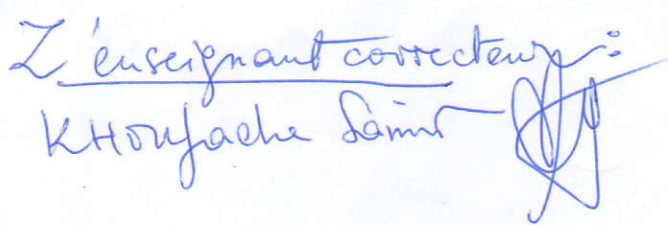 L'enseignant correcteur :
KHOUFACHE Samir